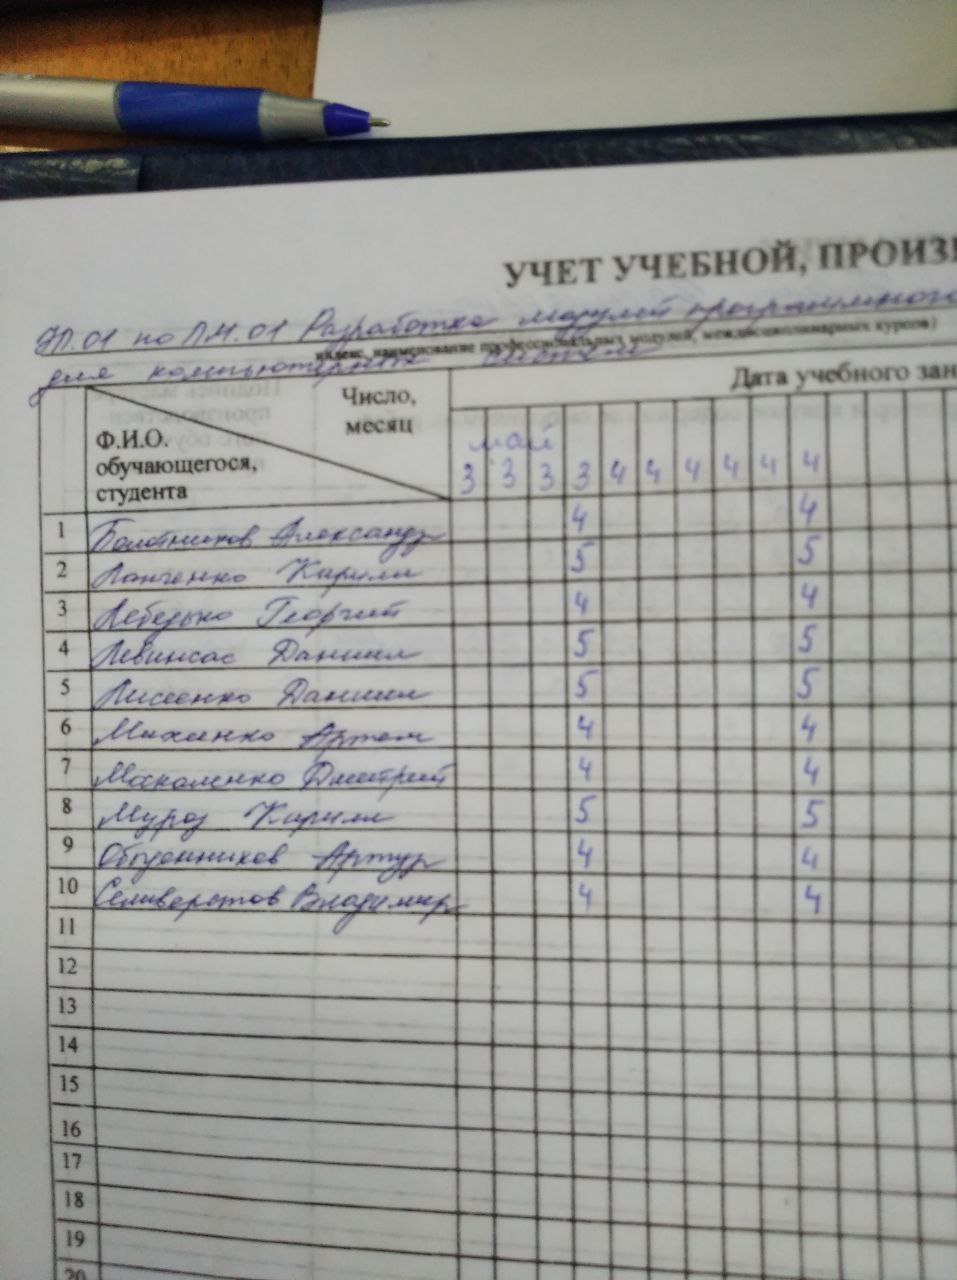 УЧЕТ УЧЕБНОЙ, ПРОИЗВ
УП.01 по ПМ.01 Разработка модулей программного
индекс, наименование профессиональных модулей, междисциплинарных курсов)
для компьютерных систем
Дата учебного зан
Число,
месяц
Ф.И.О.
обучающегося,
студента
май
3 3 3 3 4 4 4 4 4 4
1 Болотников Александр 4 4
2 Ланченко Кирилл 5 5
3 Лебедько Георгий 4 4
4 Левинсас Даниил 5 5
5 Лисеенко Даниил 5 5
6 Михеенко Артем 4 4
7 Макаленко Дмитрий 4 4
8 Мороз Кирилл 5 5
9 Обыденников Артур 4 4
10 Селиверстов Владимир 4 4
11
12
13
14
15
16
17
18
19
20